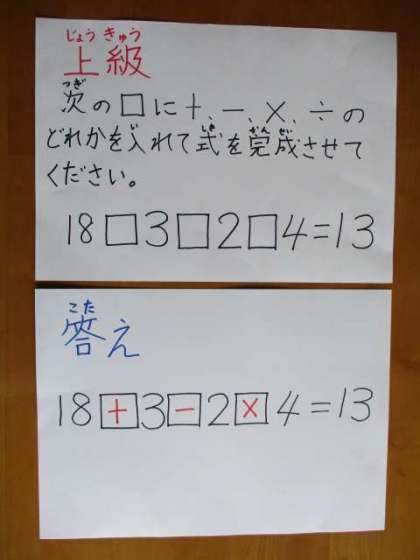 じょうきゅう
上級
つぎ
次の□に+、−、×、÷の
しき かんせい
どれかを入れて式を完成させて
ください。
18□3□2□4=13
こた
答え
18+3−2×4=13